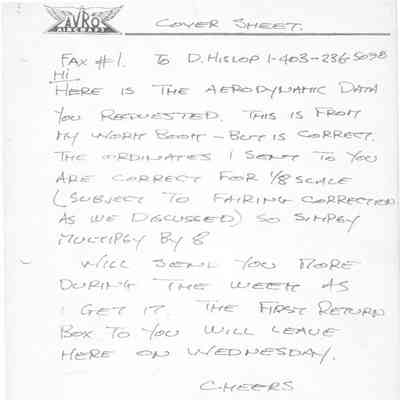 AVRO
AIRCRAFT
COVER SHEET.
FAX #1. TO D. HISLOP 1-403-236-5098
HI
HERE IS THE AERODYNAMIC DATA
YOU REQUESTED. THIS IS FROM
MY WORK BOOK - BUT IS CORRECT.
THE ORDINATES I SENT TO YOU
ARE CORRECT FOR 1/8 SCALE
(SUBJECT TO FAIRING CORRECTION
AS WE DISCUSSED) SO SIMPLY
MULTIPLY BY 8
WILL SEND YOU MORE
DURING THE WEEK AS
I GET IT. THE FIRST RETURN
BOX TO YOU WILL LEAVE
HERE ON WEDNESDAY.
CHEERS